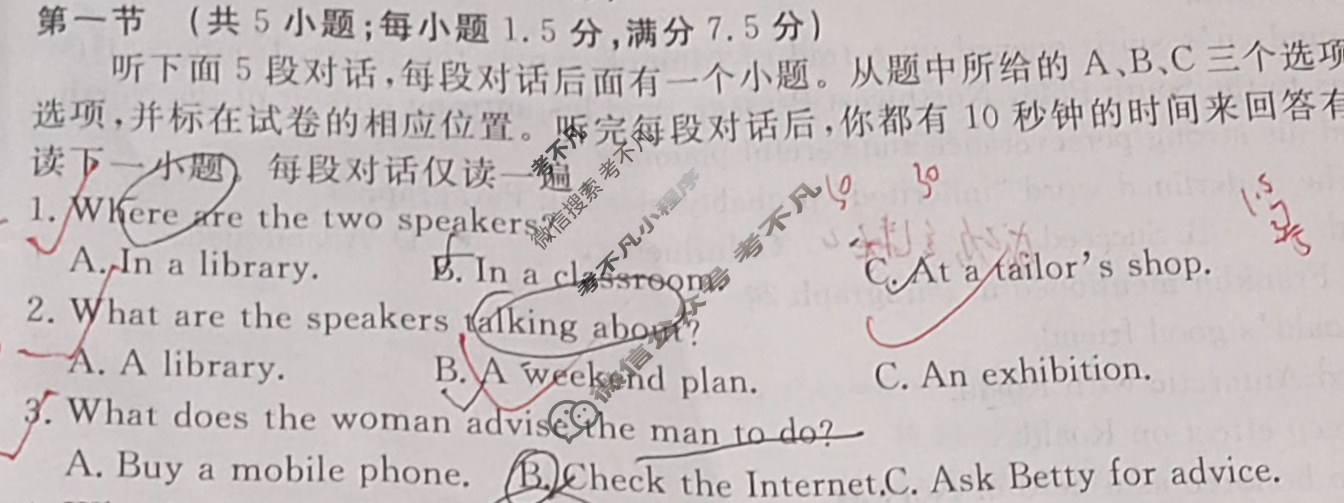 第一节 (共5小题;每小题1.5分,满分7.5分)
听下面5段对话,每段对话后面有一个小题。从题中所给的A、B、C三个选项
选项,并标在试卷的相应位置。听完每段对话后,你都有10秒钟的时间来回答有
读下一小题。每段对话仅读一遍
1. Where are the two speakers?
A. In a library. B. In a classroom. C. At a tailor's shop.
2. What are the speakers talking about?
A. A library. B. A weekend plan. C. An exhibition.
3. What does the woman advise the man to do?
A. Buy a mobile phone. B. Check the Internet. C. Ask Betty for advice.
考不凡
微信搜索 考不凡
考不凡小程序
微信公众号 考不凡
30